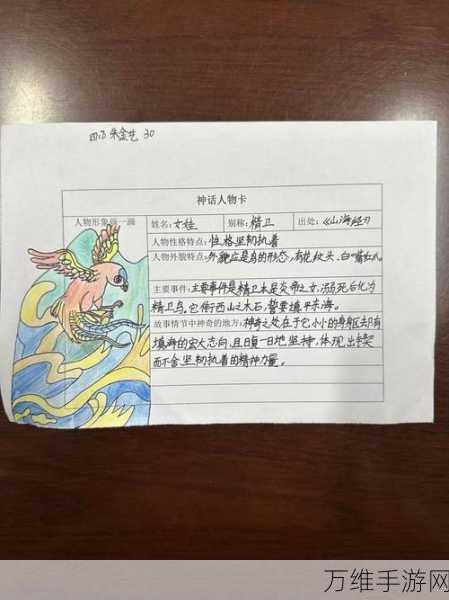 四(3) 朱金艺 30
神话人物卡
人物形象画一画
姓名:女娃 别称:精卫 出处:《山海经》
人物性格特点:性格坚韧执着
人物外貌特点:外貌应是鸟的形态,有花纹头、白嘴红爪。
主要事件:主要事件是精卫本是炎帝之女,溺死后化为
精卫鸟。它衔西山之木石,誓要填平东海。
故事情节中神奇的地方:神奇之处在于它小小的身躯却有
填海的宏大志向,且日复一日地坚持,体现出锲
而不舍坚韧执着的精神力量。
万维手游网